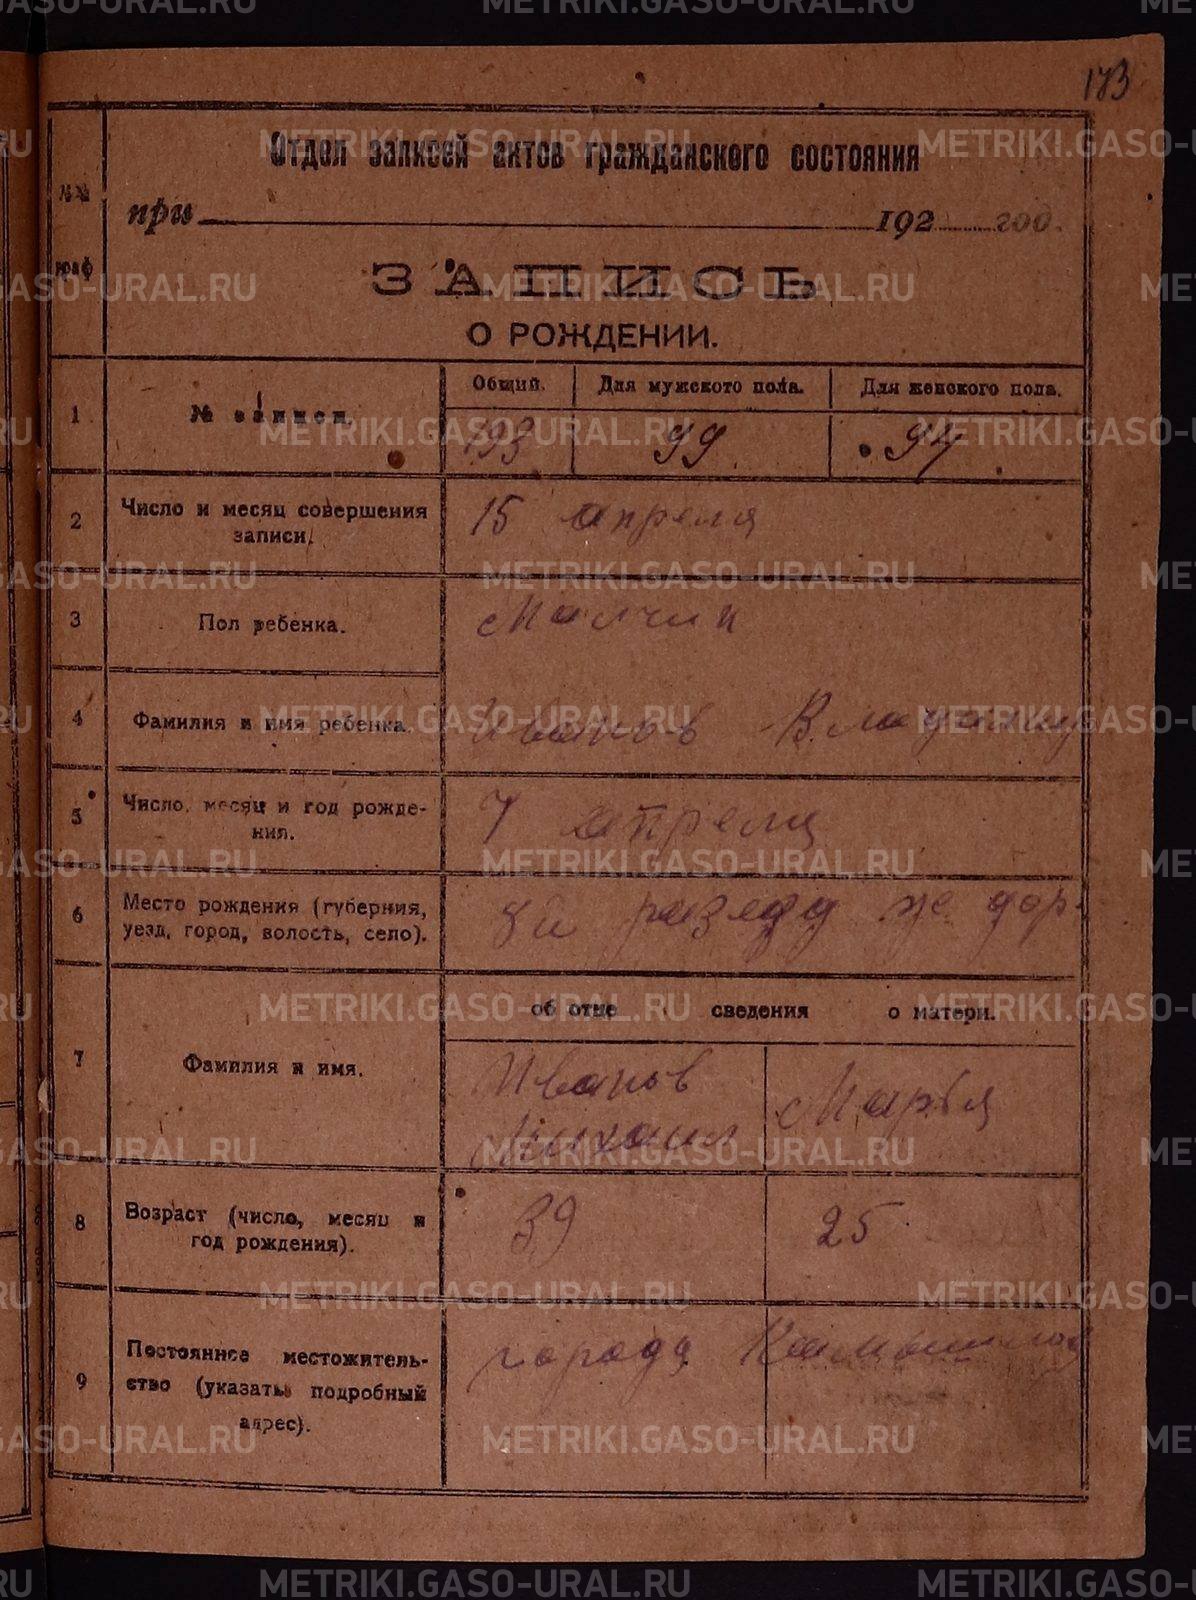 173
Отдел записей актов гражданского состояния
№№ граф
при 192 год.
ЗАПИСЬ
О РОЖДЕНИИ.
1 № записи. Общий. Для мужского пола. Для женского пола.
193 99 94
2 Число и месяц совершения записи. 15 апреля
3 Пол ребенка. Малчик
4 Фамилия и имя ребенка. Иванов Владимир
5 Число, месяц и год рожде-
ния. 7 апреля
6 Место рождения (губерния,
уезд, город, волость, село). 8й разезд же дор.
об отце сведения о матери.
7 Фамилия и имя. Иванов
Михаил Марья
8 Возраст (число, месяц и
год рождения). 39 25
9 Постоянное местожитель-
ство (указать подробный
адрес). города Камышлов
METRIKI.GASO-URAL.RU